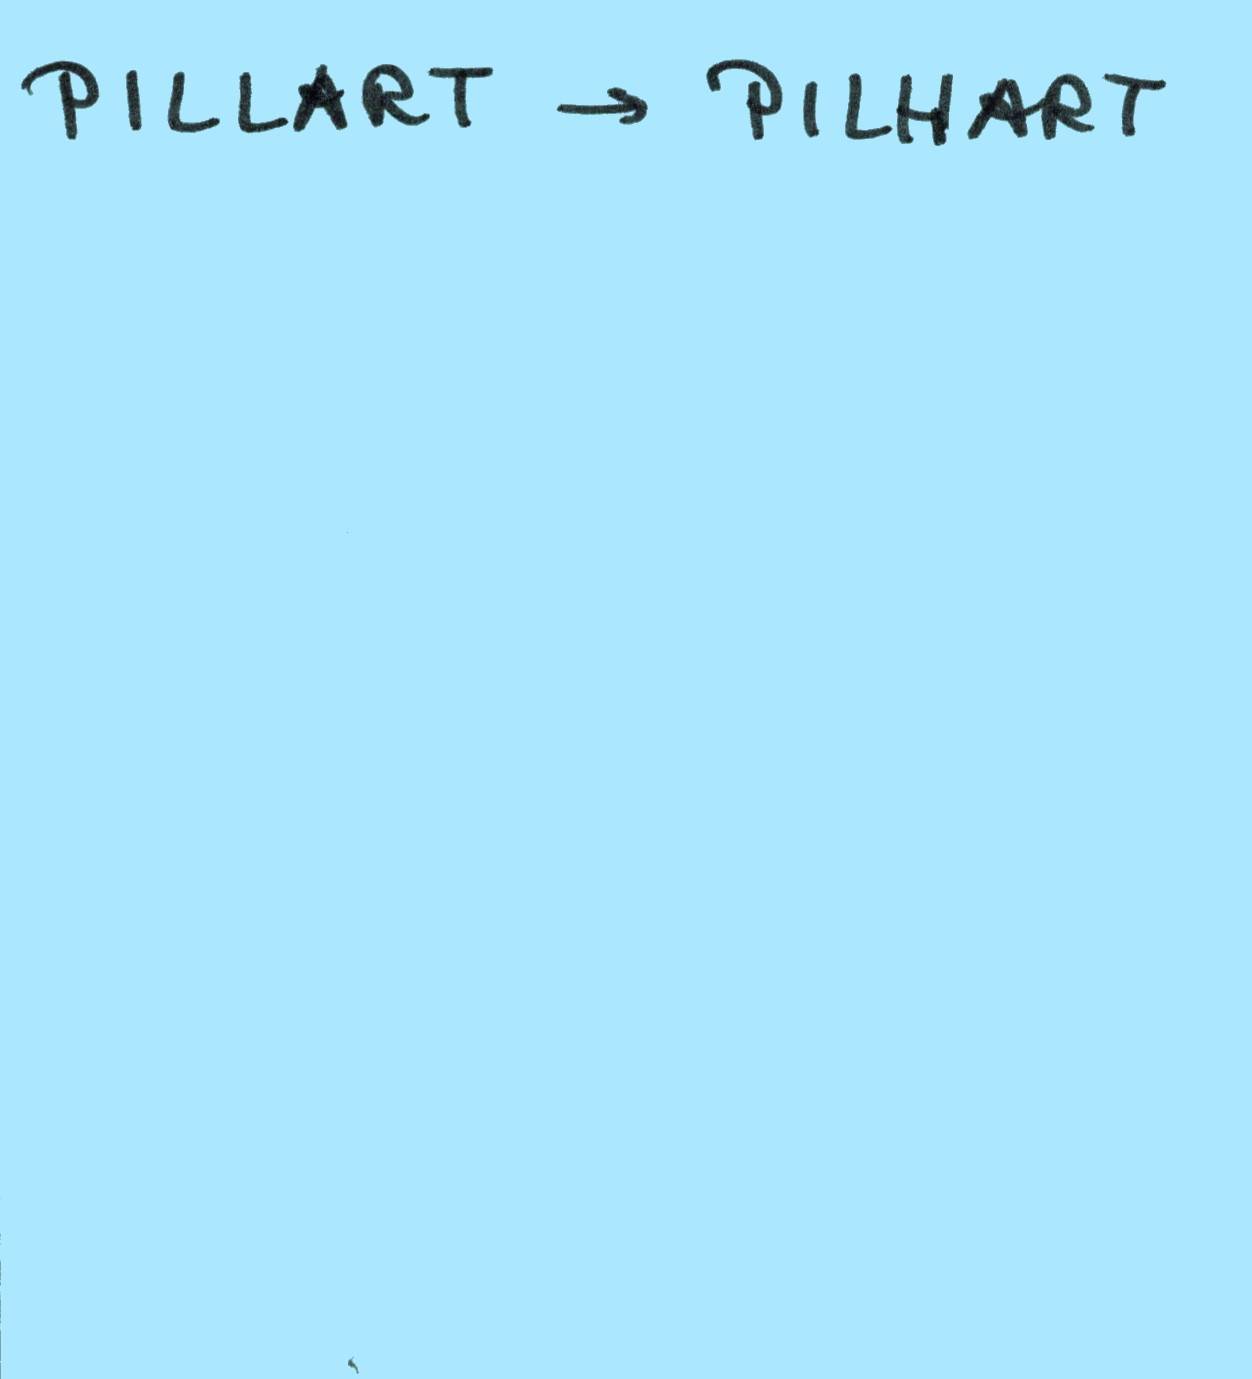 PILLART → PILHART